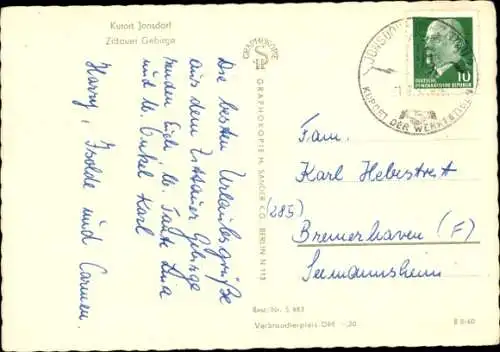 Kurort Jonsdorf
Zittauer Gebirge
Die besten Urlaubsgrüße
aus dem Zittauer Gebirge
senden Euch, lb. Tante Lina
und lb. Onkel Karl
Harry, Isolde und Carmen.
GRAPHOKOPIE
GRAPHOKOPIE H. SANDER K.G. BERLIN N 113
Best.-Nr. S 883
Verbraucherpreis DM -,20
JONSDORF
KURORT DER WERKTÄTIGEN
10
DEUTSCHE
DEMOKRATISCHE REPUBLIK
Fam.
Karl Hebestreit
(285)
Bremerhaven (F)
Seemannsheim
B 8/60